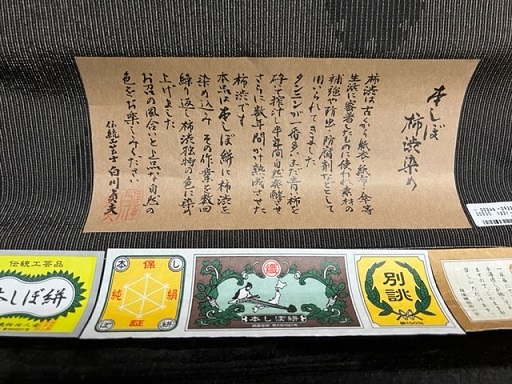 本しぼ
柿渋染め
柿渋は古くから紙衣、紙子、傘等
生活に密着したものに使われ素材の
補強や防虫、防腐剤などとして
用いられてきました。
タンニンが一番多いまだ青い柿を
砕き搾汁し半年間自然発酵させ
さらに数年間かけ熟成させた
柿渋です。
本品は本しぼ絣に柿渋を
染め込み その作業を数回
繰り返し柿渋独特の色に染め
上げました。
お召の風合いと上品な自然の
色をお楽しみください
伝統工芸士 白川
伝統工芸品
本しぼ絣
本 保 し
純 絹
ぼ 証 絣
本しぼ絣
別誂